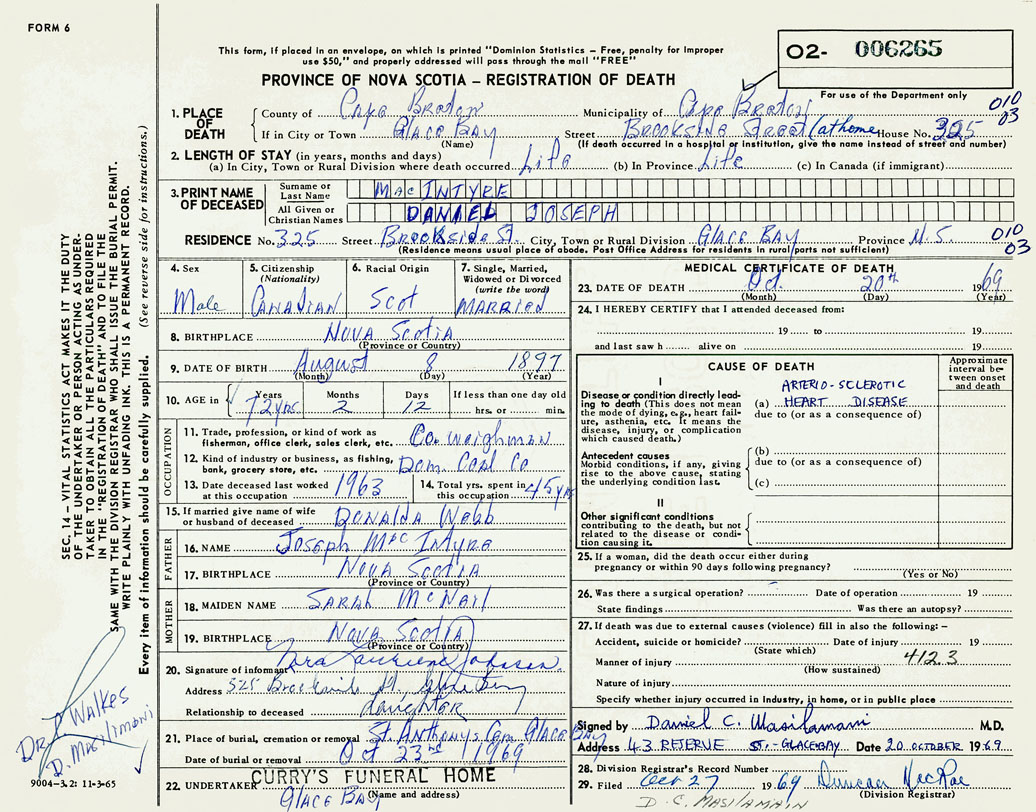 FORM 6
This form, if placed in an envelope, on which is printed "Dominion Statistics – Free, penalty for improper
use $50," and properly addressed will pass through the mail "FREE"
PROVINCE OF NOVA SCOTIA – REGISTRATION OF DEATH
O2- 006265
For use of the Department only
010
03
1. PLACE OF DEATH
County of Cape Breton Municipality of Cape Breton
If in City or Town Glace Bay Street Brookside Street (at home House No. 325
(Name) (If death occurred in a hospital or institution, give the name instead of street and number)
2. LENGTH OF STAY (in years, months and days)
(a) In City, Town or Rural Division where death occurred Life (b) In Province Life (c) In Canada (if immigrant)
3. PRINT NAME OF DECEASED
Surname or Last Name MacINTYRE
All Given or Christian Names DANIEL JOSEPH
RESIDENCE No. 325 Street Brookside St. City, Town or Rural Division Glace Bay Province N.S.
010
03
(Residence means usual place of abode. Post Office Address for residents in rural parts not sufficient)
4. Sex Male
5. Citizenship (Nationality) Canadian
6. Racial Origin Scot
7. Single, Married, Widowed or Divorced (write the word) Married
8. BIRTHPLACE Nova Scotia
(Province or Country)
9. DATE OF BIRTH August 8 1897
(Month) (Day) (Year)
10. AGE in Years 72 yrs Months 2 Days 12 If less than one day old hrs. or min.
OCCUPATION
11. Trade, profession, or kind of work as fisherman, office clerk, sales clerk, etc. Co. Weighman
12. Kind of industry or business, as fishing, bank, grocery store, etc. Dom. Coal Co
13. Date deceased last worked at this occupation 1963
14. Total yrs. spent in this occupation 45 yrs
15. If married give name of wife or husband of deceased Donalda Webb
FATHER
16. NAME Joseph MacIntyre
17. BIRTHPLACE Nova Scotia
(Province or Country)
MOTHER
18. MAIDEN NAME Sarah McNeil
19. BIRTHPLACE Nova Scotia
(Province or Country)
20. Signature of informant Johnson
Address 325 Brookside St. Glace Bay
Relationship to deceased daughter
21. Place of burial, cremation or removal St Anthony's Cem. Glace Bay
Date of burial or removal Oct 23rd 1969
22. UNDERTAKER CURRY'S FUNERAL HOME
Glace Bay (Name and address)
MEDICAL CERTIFICATE OF DEATH
23. DATE OF DEATH Oct. 20th 1969
(Month) (Day) (Year)
24. I HEREBY CERTIFY that I attended deceased from:
19 to 19
and last saw h alive on 19
CAUSE OF DEATH
Approximate interval between onset and death
I
Disease or condition directly leading to death (This does not mean the mode of dying, e.g., heart failure, asthenia, etc. It means the disease, injury, or complication which caused death.)
(a) ARTERIO-SCLEROTIC HEART DISEASE
due to (or as a consequence of)
Antecedent causes
Morbid conditions, if any, giving rise to the above cause, stating the underlying condition last.
(b)
due to (or as a consequence of)
(c)
II
Other significant conditions
contributing to the death, but not related to the disease or condition causing it.
25. If a woman, did the death occur either during pregnancy or within 90 days following pregnancy?
(Yes or No)
26. Was there a surgical operation? Date of operation 19
State findings Was there an autopsy?
27. If death was due to external causes (violence) fill in also the following: –
Accident, suicide or homicide? Date of injury 19
(State which)
Manner of injury 412.3
(How sustained)
Nature of injury
Specify whether injury occurred in industry, in home, or in public place
Signed by Daniel C. Masilamani M.D.
Address 43 RESERVE ST.- GLACE BAY Date 20 OCTOBER 1969
28. Division Registrar's Record Number
29. Filed Oct 27 1969 Duncan MacRae
(Division Registrar)
D. C. MASILAMAIN
SEC. 14 – VITAL STATISTICS ACT MAKES IT THE DUTY
OF THE UNDERTAKER OR PERSON ACTING AS UNDER-
TAKER TO OBTAIN ALL THE PARTICULARS REQUIRED
IN THE "REGISTRATION OF DEATH" AND TO FILE THE
SAME WITH THE DIVISION REGISTRAR WHO SHALL ISSUE THE BURIAL PERMIT.
WRITE PLAINLY WITH UNFADING INK. THIS IS A PERMANENT RECORD.
Every item of information should be carefully supplied. (See reverse side for instructions.)
Dr Walkes
D. Masilamani
9004-3.2: 11-3-65